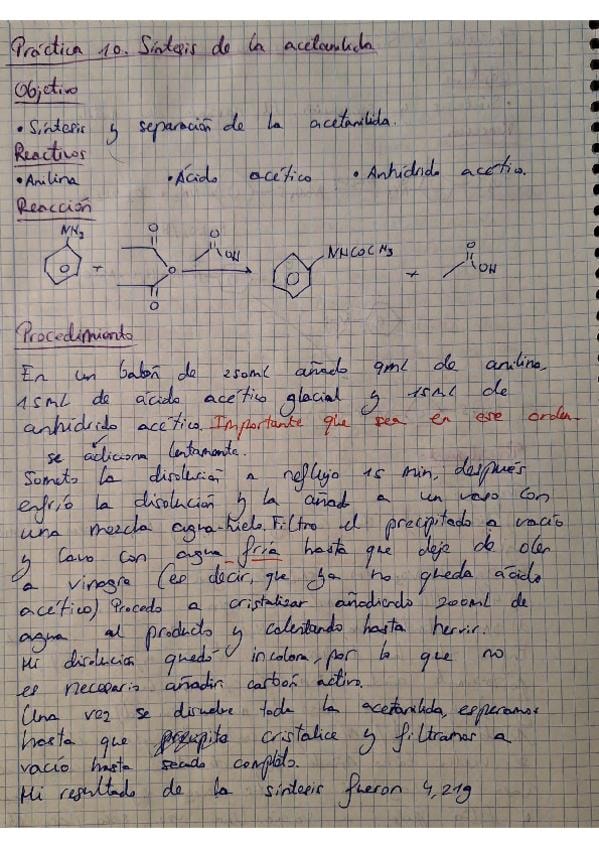 Práctica 10. Síntesis de la acetanilida
Objetivo
• Síntesis y separación de la acetanilida.
Reactivos
• Anilina • Ácido acético • Anhídrido acético.
Reacción
NH2 O O
OH NHCOCH3 O
+ O + OH
O
Procedimiento
En un balón de 250ml añado 9ml de anilina,
15ml de ácido acético glacial y 15ml de
anhídrido acético. Importante que sea en ese orden.
se adiciona lentamente.
Someto la disolución a reflujo 15 min, después
enfrío la disolución y la añado a un vaso con
una mezcla agua-hielo. Filtro el precipitado a vacío
y lavo con agua fría hasta que deje de oler
a vinagre (es decir, que ya no queda ácido
acético) Procedo a cristalizar añadiendo 200ml de
agua al producto y calentando hasta hervir.
Mi disolución quedó incolora, por lo que no
es necesario añadir carbón activo.
Una vez se disuelve toda la acetanilida, esperamos
hasta que cristalice y filtramos a
vacío hasta secado completo.
Mi resultado de la síntesis fueron 4,21g